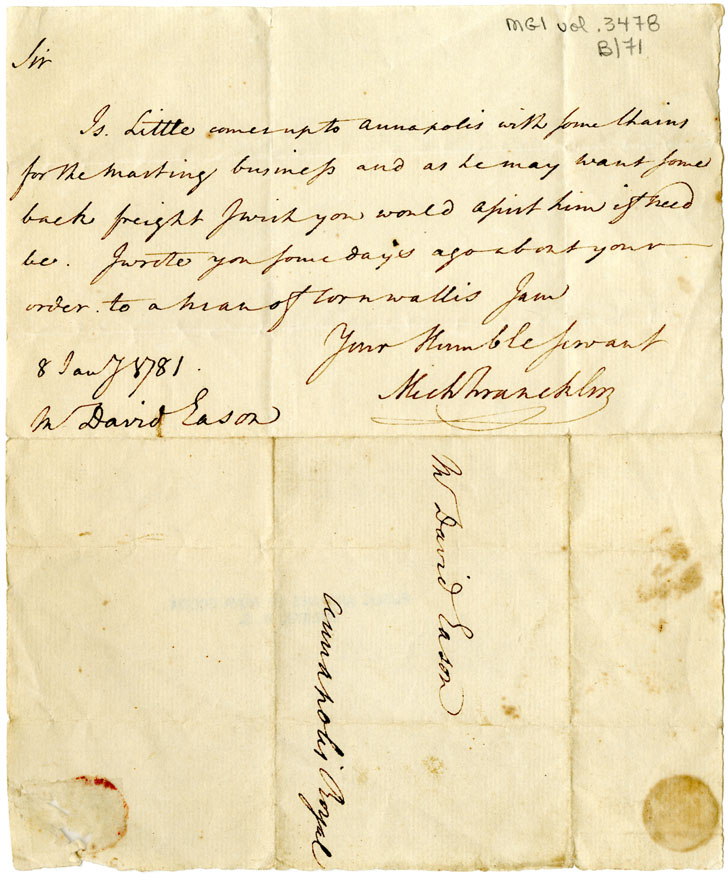 MG1 vol. 3478
B/71
Sir
Is. Little comes up to Annapolis with some Chains
for the masting business and as he may want some
back freight I wish you would assist him if need
be. I wrote you some days ago about your
order to a man of Cornwallis I am
Your Humble servant
8 Jany 1781.
Mich Francklin
Mr David Eason
Mr David Eason
Annapolis Royal